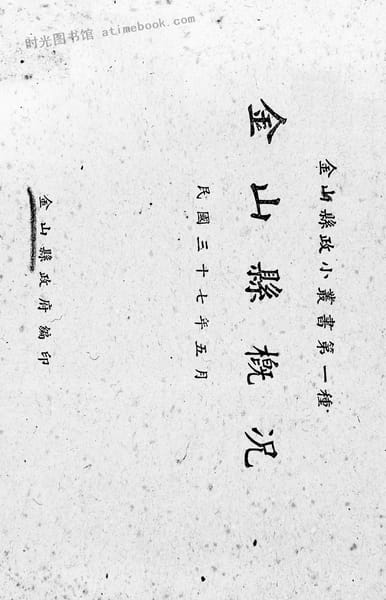 时光图书馆 atimebook.com
金山縣政小叢書第一種
金山縣概况
民國三十七年五月
金山縣政府編印